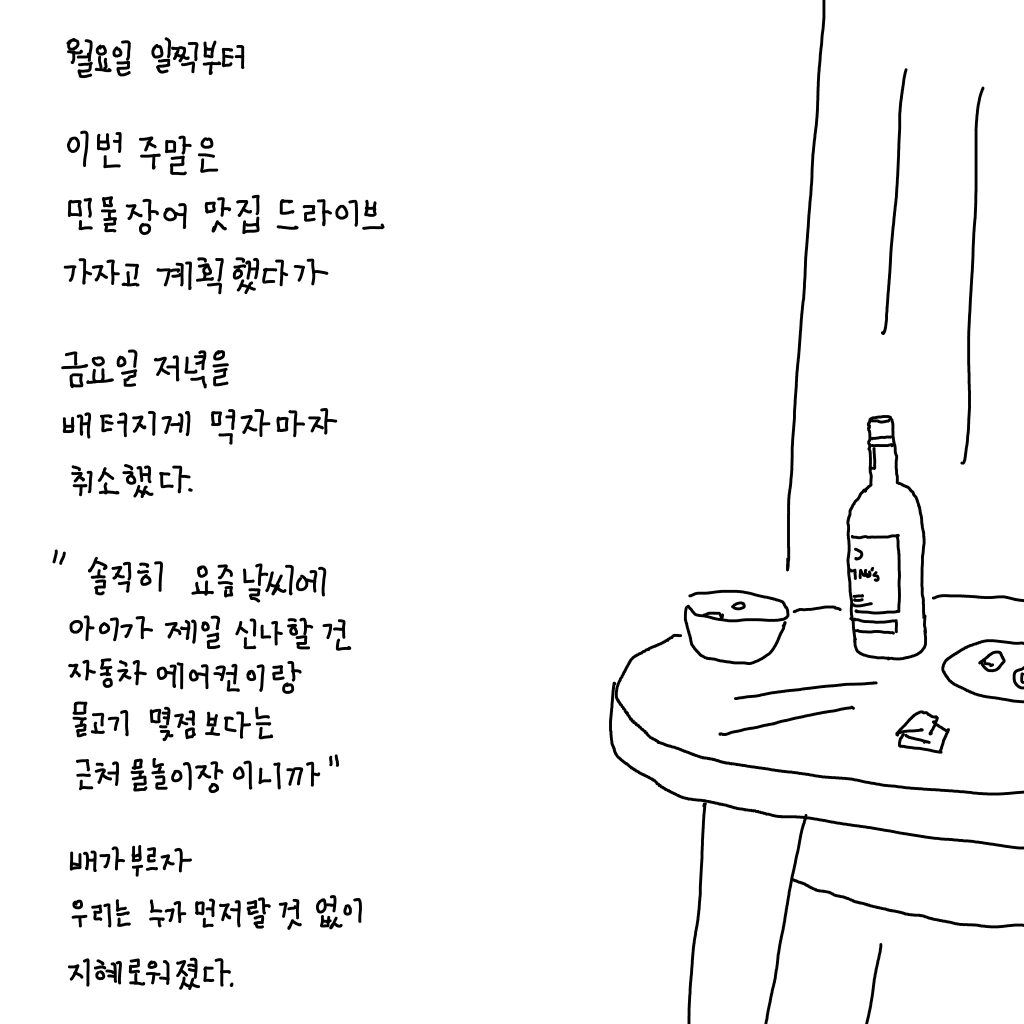 월요일 일찍부터
이번 주말은
민물장어 맛집 드라이브
가자고 계획했다가
금요일 저녁을
배터지게 먹자마자
취소했다.
"솔직히 요즘날씨에
아이가 제일 신나할 건
자동차 에어컨이랑
물고기 몇점보다는
근처 물놀이장이니까"
배가부르자
우리는 누가 먼저랄 것 없이
지혜로워졌다.